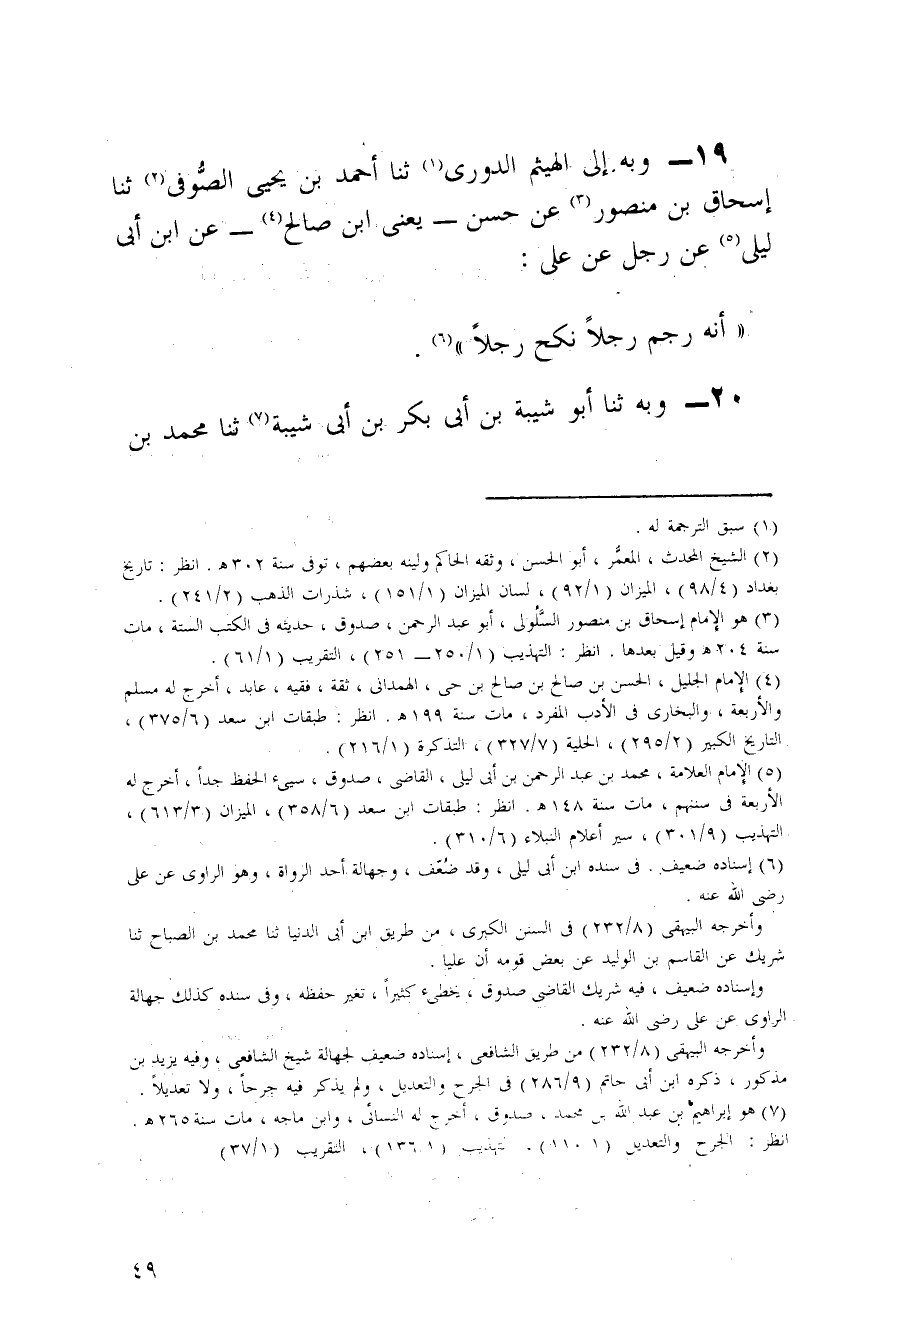 ١٩ــ وبه إلى الهيثم الدورى(١) ثنا أحمد بن يحيى الصُّوفى(٢) ثنا
إسحاق بن منصور(٣) عن حسن ــ يعنى ابن صالح(٤) ــ عن ابن أبى
ليلى(٥) عن رجل عن على :
« أنه رجم رجلاً نكح رجلاً »(٦) .
٢٠ــ وبه ثنا أبو شيبة بن أبى بكر بن أبى شيبة(٧) ثنا محمد بن
(١) سبق الترجمة له .
(٢) الشيخ المحدث ، المعمَّر ، أبو الحسن ، وثقه الحاكم ولينه بعضهم ، توفى سنة ٣٠٢هـ . انظر : تاريخ
بغداد (٩٨/٤) ، الميزان (٩٢/١) ، لسان الميزان (١٥١/١) ، شذرات الذهب (٢٤١/٢) .
(٣) هو الإمام إسحاق بن منصور السَّلُولى ، أبو عبد الرحمن ، صدوق ، حديثه فى الكتب الستة ، مات
سنة ٢٠٤هـ وقيل بعدها . انظر : التهذيب (٢٥٠/١ــ ٢٥١) ، التقريب (٦١/١) .
(٤) الإمام الجليل ، الحسن بن صالح بن صالح بن حى ، الهمدانى ، ثقة ، فقيه ، عابد ، أخرج له مسلم
والأربعة ، والبخارى فى الأدب المفرد ، مات سنة ١٩٩هـ . انظر : طبقات ابن سعد (٣٧٥/٦) ،
التاريخ الكبير (٢٩٥/٢) ، الحلية (٣٢٧/٧) ، التذكرة (٢١٦/١) .
(٥) الإمام العلامة ، محمد بن عبد الرحمن بن أبى ليلى ، القاضى ، صدوق ، سيىء الحفظ جداً ، أخرج له
الأربعة فى سننهم ، مات سنة ١٤٨هـ . انظر : طبقات ابن سعد (٣٥٨/٦) ، الميزان (٦١٣/٣) ،
التهذيب (٣٠١/٩) ، سير أعلام النبلاء (٣١٠/٦) .
(٦) إسناده ضعيف . فى سنده ابن أبى ليلى ، وقد ضُعّف ، وجهالة أحد الرواة ، وهو الراوى عن على
رضى الله عنه .
وأخرجه البيهقى (٢٣٢/٨) فى السنن الكبرى ، من طريق ابن أبى الدنيا ثنا محمد بن الصباح ثنا
شريك عن القاسم بن الوليد عن بعض قومه أن عليا .
وإسناده ضعيف ، فيه شريك القاضى صدوق ، يخطىء كثيراً ، تغير حفظه ، وفى سنده كذلك جهالة
الراوى عن على رضى الله عنه .
وأخرجه البيهقى (٢٣٢/٨) من طريق الشافعى ، إسناده ضعيف لجهالة شيخ الشافعى ، وفيه يزيد بن
مذكور ، ذكره ابن أبى حاتم (٢٨٦/٩) فى الجرح والتعديل ، ولم يذكر فيه جرحاً ، ولا تعديلاً .
(٧) هو إبراهيم بن عبد الله بن محمد ، صدوق ، أخرج له النسائى ، وابن ماجه ، مات سنة ٢٦٥هـ .
انظر : الجرح والتعديل . تهذيب ، التقريب (٣٧/١)
٤٩